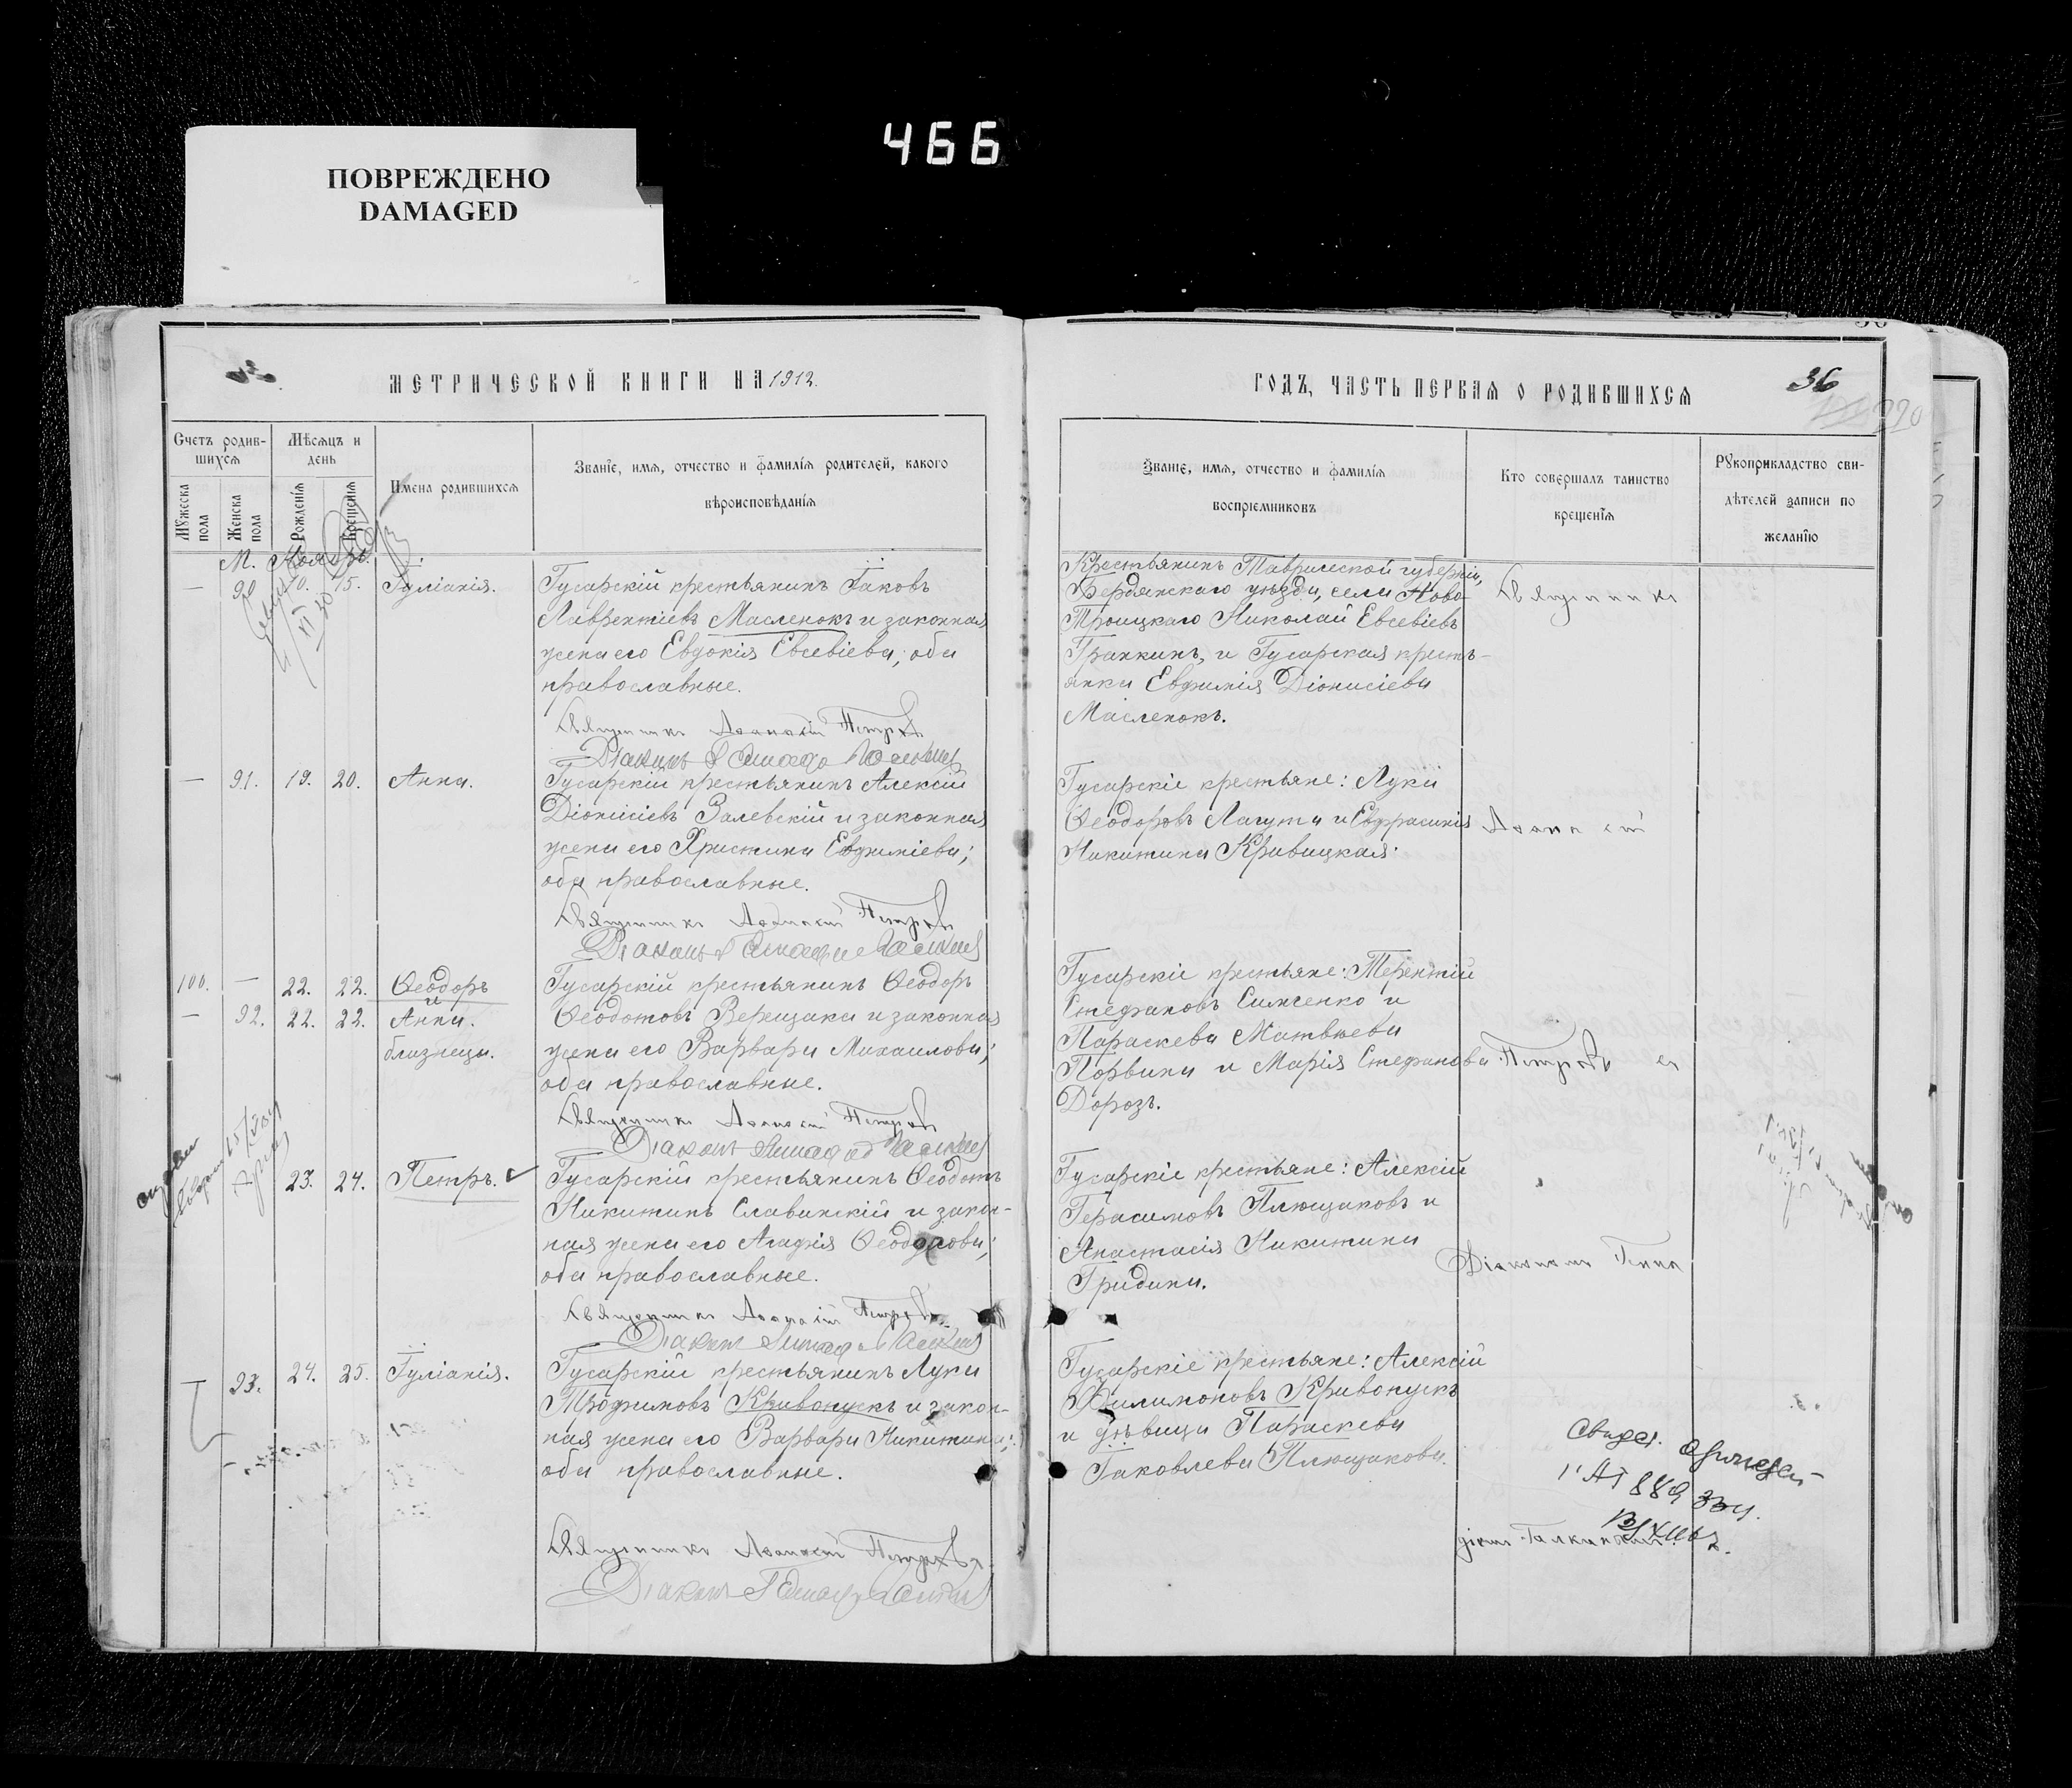 466
ПОВРЕЖДЕНО
DAMAGED
МЕТРИЧЕСКОЙ КНИГИ НА 1912.
Счетъ родив-
шихся
Мѣсяцъ и
день
Имена родившихся
Званіе, имя, отчество и фамилія родителей, какого
вѣроисповѣданія
Мужеска
пола
Женска
пола
Рожденія
Крещенія
М. Ноябрь.
— 90 15. Іуліанія.
Гусарскій крестьянинъ Іаковъ
Лаврентіевъ Масленокъ и законная
жена его Евдокія Евсевіева; оба
православные.
Священникъ Аѳанасій Петровъ
Діаконъ
— 91. 19. 20. Анна.
Гусарскій крестьянинъ Алексій
Діонисіевъ Залевскій и законная
жена его Христина Евфиміева;
оба православные.
Священникъ Аѳанасій Петровъ
Діаконъ
100. — 22. 22. Ѳеодоръ
и
— 92. 22. 22. Анна.
близнецы.
Гусарскій крестьянинъ Ѳеодоръ
Ѳеодотовъ Верещака и законная
жена его Варвара Михаилова;
оба православные.
Священникъ Аѳанасій Петровъ
Діаконъ
23. 24. Петръ.
Гусарскій крестьянинъ Ѳеодотъ
Никитинъ Славинскій и закон-
ная жена его Агафія Ѳеодорова;
оба православные.
Священникъ Аѳанасій Петровъ.
Діаконъ
— 93. 24. 25. Іуліанія.
Гусарскій крестьянинъ Лука
Трофимовъ Кривопускъ и закон-
ная жена его Варвара Никитина;
оба православные.
Священникъ Аѳанасій Петровъ.
Діаконъ
ГОДЪ, ЧАСТЬ ПЕРВАЯ О РОДИВШИХСЯ
36
220
Званіе, имя, отчество и фамилія
воспріемниковъ
Кто совершалъ таинство
крещенія
Рукоприкладство сви-
дѣтелей записи по
желанію
Крестьянинъ Таврической губерніи,
Бердянскаго уѣзда, села Ново-
Троицкаго Николай Евсевіевъ
Гранкинъ, и Гусарская кресть-
янка Евфимія Діонисіева
Масленокъ.
Священникъ
Гусарскіе крестьяне: Лука
Ѳеодоровъ Лагута и Евфрасинія
Никитина Кривицкая.
Аѳанасій
Гусарскіе крестьяне: Терентій
Стефановъ Симченко и
Параскева Матвѣева
Порвина и Марія Стефанова
Дорозъ.
Петровъ съ
Гусарскіе крестьяне: Алексій
Герасимовъ Плющаковъ и
Анастасія Никитина
Гридина.
Діакономъ
Гусарскіе крестьяне: Алексій
Филимоновъ Кривопускъ
и дѣвица Параскева
Іаковлева Плющакова.